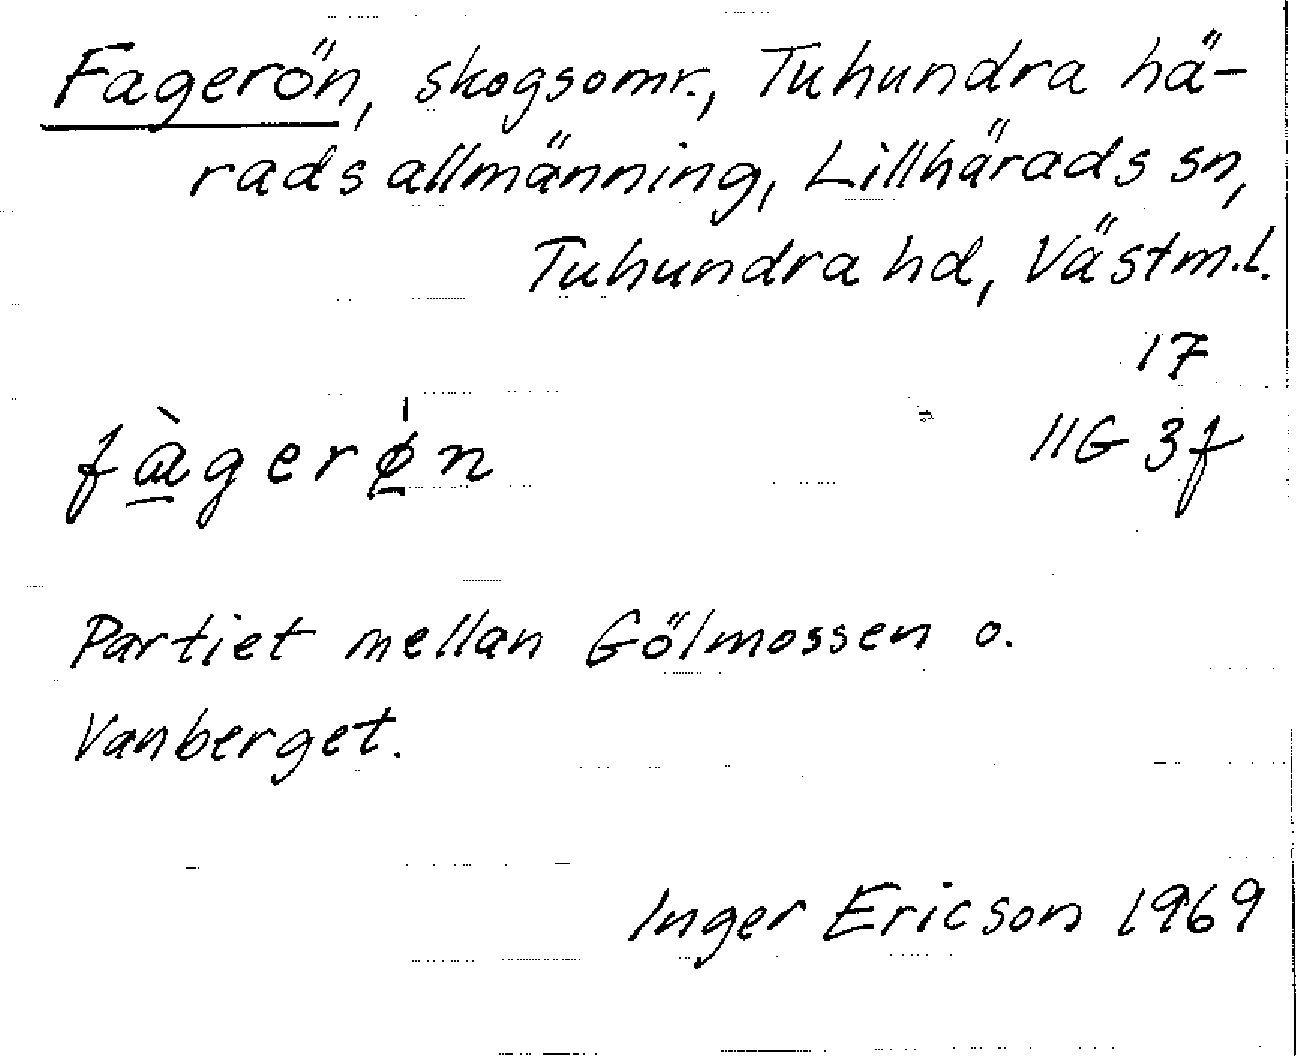 Fagerön, skogsomr., Tuhundra hä-
rads allmänning, Lillhärads sn,
Tuhundra hd, Västm.l.
17
fàgerǿn 11G 3f
Partiet mellan Gölmossen o.
Vanberget.
Inger Ericson 1969